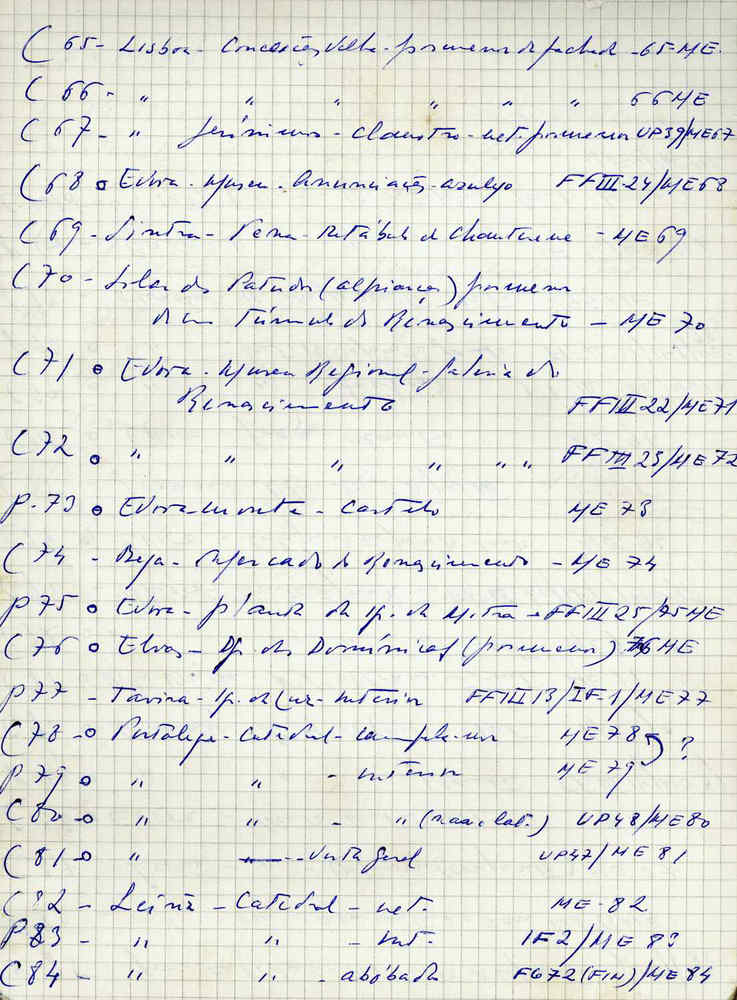 C 65 - Lisboa - Conceição Velha - pormenor da fachada - 65-ME.
C 66 - " " " " " " 66 ME
C 67 - " Jerónimos - claustro - ext. pormenor UP39/ME67
C 68 o Évora - Museu - Anunciação - azulejo FFIII-24/ME68
C 69 - Sintra - Pena - Retábulo de Chanterene - ME 69
C 70 - Solar dos Patudos (Alpiarça) pormenor
de um Túmulo do Renascimento - ME 70
C 71 o Évora - Museu Regional - Galeria do
Renascimento FFIII 22/ME71
C 72 o " " " " " " FFIII 23/ME 72
P. 73 o Evoramonte - Castelo ME 73
C 74 - Beja - Mercado do Renascimento - ME 74
P 75 o Évora - planta da Ig. da Mitra - FFIII 25/75 ME
C 76 o Elvas - Ig. das Domínicas (pormenor) 76 ME
P 77 - Tavira - Ig. da Luz - interior FFIII 13/IF-1/ME 77
C 78 - o Portalegre - Catedral - ME 78 ?
P 79 o " " - interior ME 79
C 80 - o " " - " (nave lat.) UP48/ME 80
C 81 - o " - vista geral UP47/ME 81
C 82 - Leiria - Catedral - ext. ME-82
P 83 - " " - int. IF2/ME 83
C 84 - " " - abóbada F672 (FIN)/ME 84